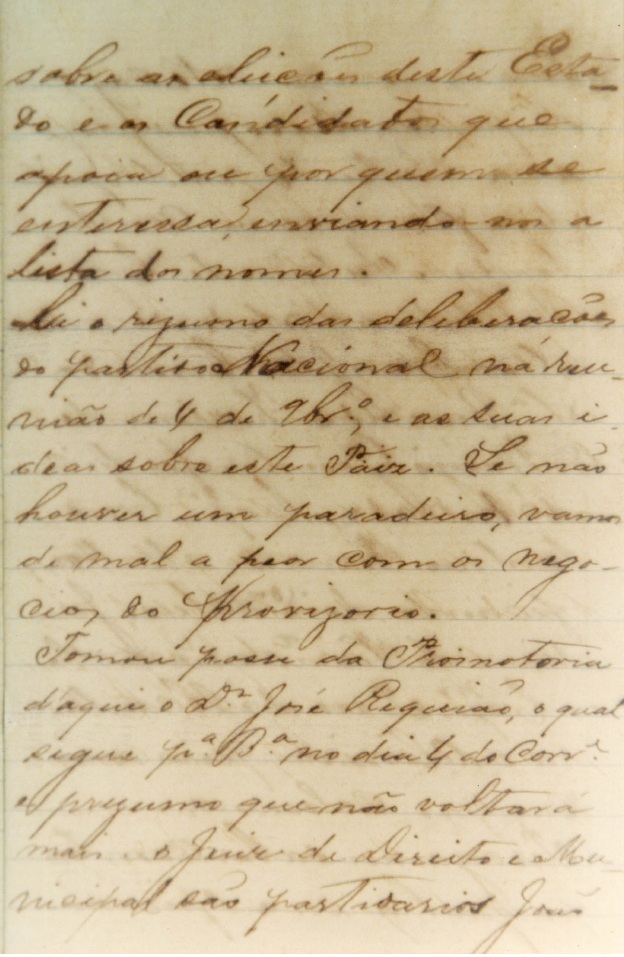 sobre as eleicões deste Esta-
do e os Candidatos que
apoia ou por quem se
enteressa, enviando-nos a
lista dos nomes.
Li o rezumo das deliberacões
do partido Nacional na reu-
nião de 4 de 9br.º, e as suas i-
deas sobre este Paiz. Se não
houver um paradeiro, vamos
de mal a peor com os nego-
cios do Provizorio.
Tomou posse da Promotoria
d'aqui o Dr. José Requião, o qual
segue p.ª B.ª no dia 4 do Corr.e
e prezumo que não voltará
mais. o Juiz de Direito e Mu-
nicipal são partidarios